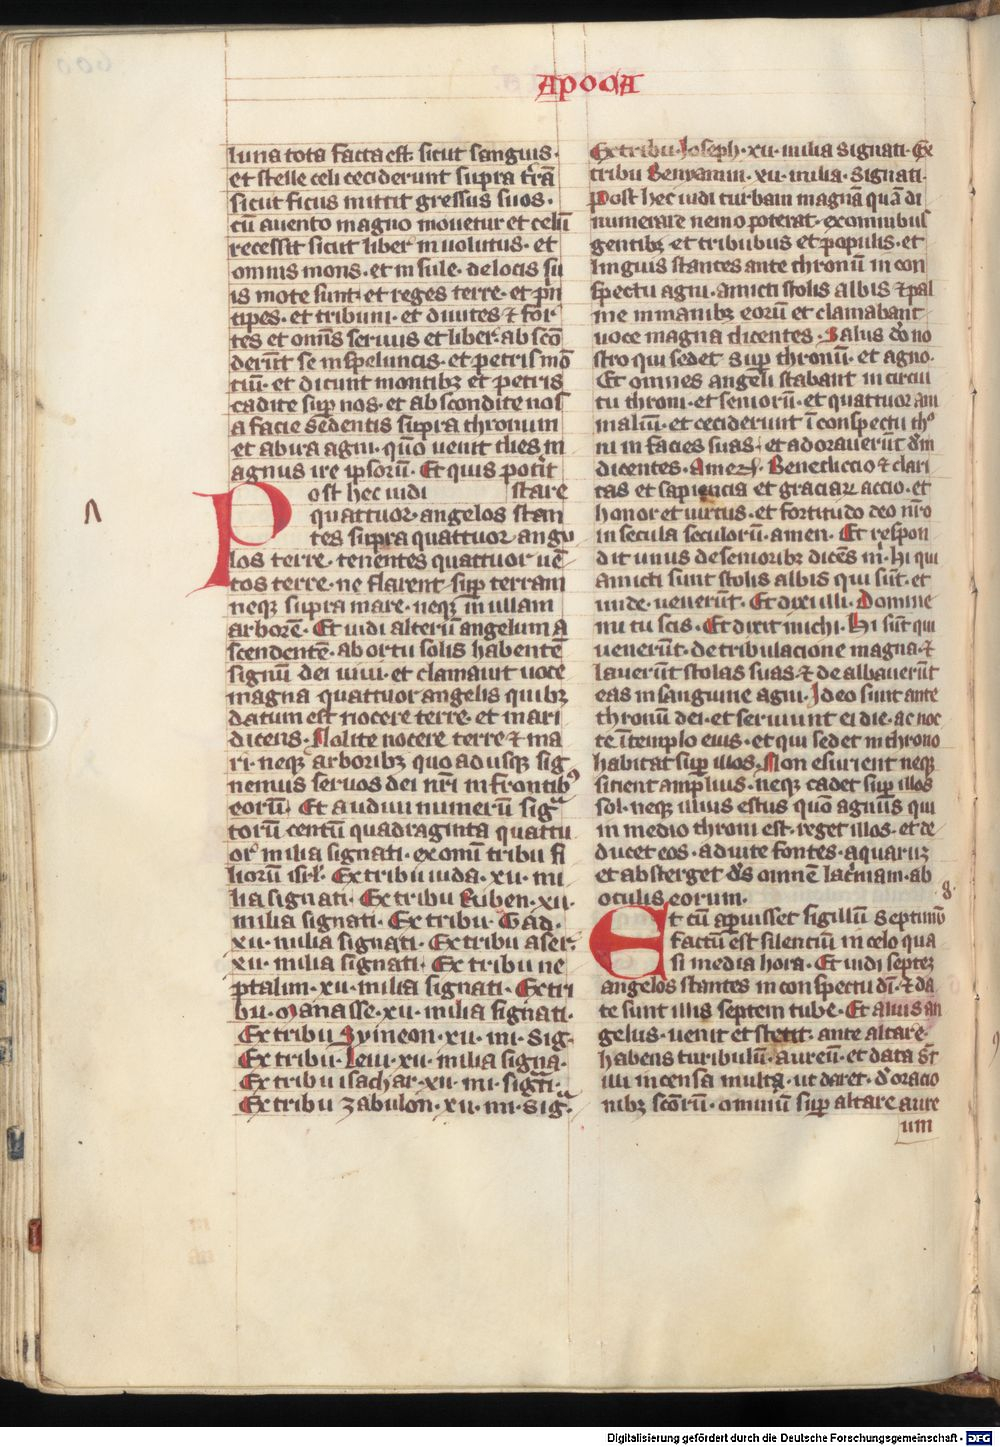 APOCA
luna tota facta est. sicut sanguis.
et stelle celi ceciderunt supra t̅ra̅
sicut ficus mittit gressus suos.
cu̅ auento magno mouetur et celu̅
recessit sicut liber inuolutus. et
omnis mons. et insule. delocis su
is mote sunt et reges terre. et p̅n
tipes. et tribuni. et diuites ⁊ for
tes et omn̅s seruus et liber. absco̅
deru̅t se inspeluncis. et petris mo̅
tiu̅. et dicunt montibꝫ et petris
cadite sup̲ nos. et abscondite nos
a facie sedentis supra thronum
et abira agni. qm̅o uenit dies m
agnus ire ipsoru̅. Et quis potit̅
stare
Post hec uidi
quattuor. angelos stan
tes supra quattuor angu
los terre. tenentes quattuor ue̅
tos terre. ne flarent sup̲ terram
neqꝫ supra mare. neqꝫ in ullam
arbore̅. Et uidi alteru̅ angelum a
scendente̅. abortu solis habente̅
signu̅ dei uiui. et clamauit uoce
magna quattuor angelis quibꝫ
datum est nocere terre. et mari
dicens. Nolite nocere terre ⁊ ma
ri. neqꝫ arboribꝫ quo adusqꝫ sig
nemus seruos dei nr̅i in frontibꝰ
eoru̅. Et audiui numeru̅ sigᵃ
toru̅ centu̅ quadraginta quattu
or milia signati. ex omni tribu fi
lioru̅ isrl̅. Ex tribu iuda. xii. mi
lia signati. Ex tribu Ruben. xii.
milia signati. Ex tribu. Gad.
xii. milia signati. Ex tribu aser.
xii. milia signati. Ex tribu ne
ptalim. xii. milia signati. Ex tri
bu. Manasse. xii. milia signati.
Ex tribu Symeon. xii. mi. sig.
Ex tribu. Leui. xii. milia signa.
Ex tribu isachar. xii. mi. sigᵃti.
Ex tribu zabulon. xii. mi. sigᵃ.
Ex tribu. Ioseph. xii. milia signati. Ex
tribu Benyamin. xii. milia. signati.
Post hec uidi turbam magna̅ qua̅ di
numerare nemo poterat. ex omnibus
gentibꝫ. et tribubus et populis. et
linguis stantes ante thronu̅ in con
spectu agni. amicti stolis albis ⁊ pal
me in manibꝫ eoru̅ et clamabant
uoce magna dicentes. Salus do̅ no
stro qui sedet sup̲ thronu̅. et agno.
Et omnes angeli stabant in circui
tu throni. et senioru̅. et quattuor ani
maliu̅. et ceciderunt i̅ conspectu thᵒ
ni in facies suas. et adorauerut̅ dm̅
dicentes. Amen. Benedictio ⁊ clari
tas et sapiencia et graciaꝝ actio. et
honor et uirtus. et fortitudo deo nr̅o
in secula seculoru̅. amen. Et respon
dit unus de senioribꝫ dice̅s m̅. hi qui
amicti sunt stolis albis qui su̅t. et
unde. uenerut̅. Et dixi illi. Domine
mi tu scis. Et dixit michi. Hi su̅t qui
uenerut̅. de tribulacione magna. ⁊
lauerut̅ stolas suas ⁊ de albauerut̅
eas in sanguine agni. Ideo sunt ante
thronu̅ dei. et seruiunt ei die. ac noc
te i̅ templo eius. et qui sedet in throno
habitat sup̲ illos. Non esurient neqꝫ
sitient amplius. neqꝫ cadet sup̲ illos
sol. neqꝫ ullus estus quo̅ agnus qui
in medio throni est. reget illos. et de
ducet eos. aduite fontes. aquaruꝫ
et absterget ds̅ omne̅ lac̅mam. ab
oculis eorum. 8.
Et cu̅ apuisset sigillu̅ septimu̅
factu̅ est silentiu̅ in celo qua
si media hora. Et uidi septeꝫ
angelos stantes in conspectu di̅. ⁊ da
te sunt illis septem tube. Et alius an
gelus. uenit et stetit. ante altare.
habens turibulu̅. aureu̅. et data st̅
illi incensa multa. ut daret. d̅ oracio
nibꝫ sco̅ru̅. omniu̅ sup̲ altare aure
um
Digitalisierung gefördert durch die Deutsche Forschungsgemeinschaft - DFG